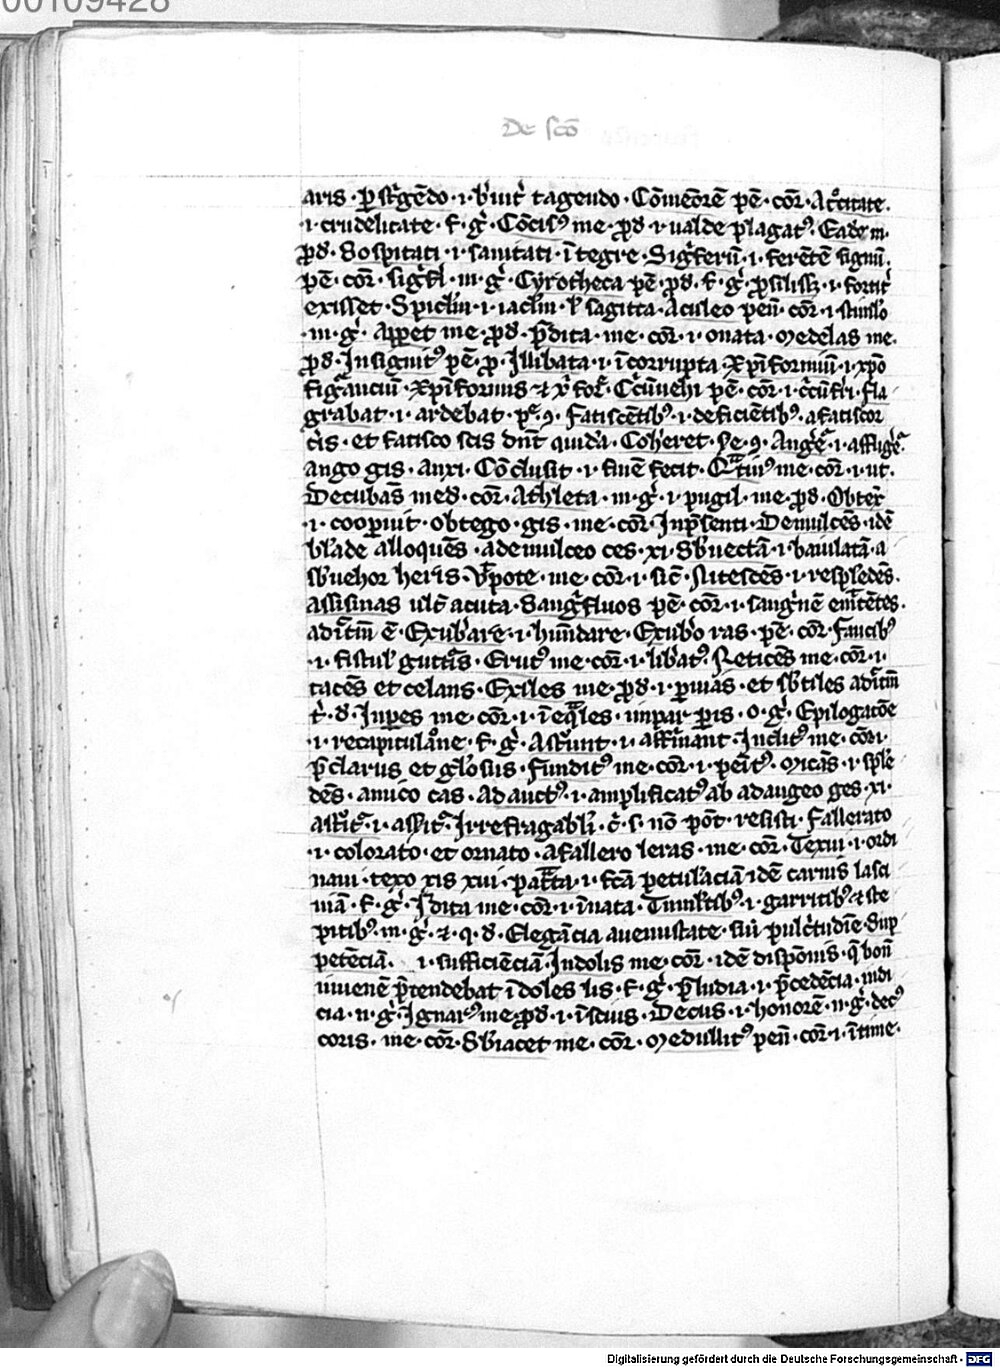 00109428
De sco̅
aris · ꝑ st̾ge̅do · i · b̾uit̾ tagendo · Co̅meo̅re̅ pe̅ · cor̅ · At̾citate ·
· i · crudelitate · f · g̾ · Co̅cisꝰ me · ꝓd · i · ualde plagatꝰ · Eade̅ m ·
ꝓd · Sospitati · i · sanitati · i̅tegre · Sig̾feru̅ · i · fere̅te̅ signu̅ ·
pe̅ · cor̅ · m · g̾ · Cyrotheca pe̅ · ꝓd · f · g̾ · i · fortit̾
exisset · Spicl̅m · i · iacl̅m · l̾ sagitta · Aculeo pen̅ · cor̅ · i · stiml̾o
· m · g̾ · Appet me · ꝓd · P̾dita · me · cor̅ · i · onata · Medelas me ·
ꝓd · Insignitꝰ pe̅ · ꝓ · Illibata · i · i̅corrupta · Xp̅iformiu̅ · i · xp̅o
fig̾anciu̅ · Xp̅iformis · Cc̾u̅uehi pe̅ · cor̅ · i · cc̾u̅fr̾i · fla
grabat · i · ardebat · fatisce̅tibꝰ · i · deficie̅tibꝰ · a fatiscor
c̾is · et fatisco scis dn̅t quida̅ · Coh̾eret · Ang̾e̅ · i · afflig̾e̅
ango gis · anxi · Co̅clusit · i · fine̅ fecit · me · cor̅ · i · ut ·
Decubas̅ med · cor̅ · Athleta · m · g̾ · i · pugil · me · ꝓd · Obtex̾
· i · coop̾uit · obtego · gis · me · cor̅ · Inp̾senti · Demulce̅s · ide̅
bla̅de alloque̅s · a demulceo ces · xi · Sb̾uecta̅ · i · baiulata̅ · a
sb̾uehor heris · Vt̾pote · me · cor̅ · i · sic̅ · Nitesce̅s · i · resple̅de̅s ·
assisinas ult̅ acuta · Sang̾fluos pe̅ · cor̅ · i · sang̾ne̅ emitte̅tes ·
aditm̅ e̅ · Exub̾are · i · hu̅ndare · Exub̾o ras · pe̅ · cor̅ · Faucibꝰ
· i · fistul̾ gutt̾is · Erutꝰ me · cor̅ · i · lib̾atꝰ · Retice̅s me · cor̅ · i ·
tace̅s et celans · Exiles me · ꝓd · i · p̾uas · et sb̾tiles aditm̅
t̾ · d · Inpes me · cor̅ · i · i̅eq̾les · impar ꝑis · o · g̾ · Epilogaco̅e
· i · recapitula̅ne · f · g̾ · Ast̾unt · i · affir̅mant · Inclitꝰ me · cor̅ i ·
p̾clarus et gl̾osus · Funditꝰ me · cor̅ · i · pe̅itꝰ · Mica̅s · i · sple̅
de̅s · a mico cas · Adauctꝰ · i · amplificatꝰ ab adaugeo ges · xi ·
Irrefragabl̾ · c̾ · s · no̅ pot̅ · resisti · Fallerato
· i · colorato · et ornato · a fallero leras · me · cor̅ · Texui · i · ordi
naui · texo xis xui · i · sc̅a petula̅cia̅ ide̅ carnis lasci
uia̅ · f · g̾ · S̾dita me · cor̅ · i · i̅nata · Tumultibꝰ · i · garritibꝰ · et ste
pitibꝰ · m · g̾ · Elega̅cia a uenustate · siu̅ pulc̾tudi̅e · Sup
pete̅cia̅ · i · sufficie̅cia̅ · Indolis me · cor̅ · ide̅ dispo̅nis · q̅ bon̅
iuuene̅ p̾tendebat i̅doles lis · f · g̾ · P̾ludia · i · p̾cede̅cia · indi
cia · n · g̾ · Ignarꝰ me · ꝓd · i · i̅scius · Decus · i · honore̅ · n · g̾ · decꝰ
coris · me · cor̅ · Sb̾iacet me · cor̅ · Medullitꝰ pen̅ · cor̅ · i · i̅time ·
Digitalisierung gefördert durch die Deutsche Forschungsgemeinschaft · DFG